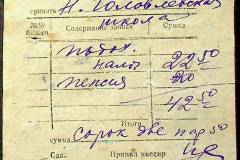 принять Н. Головлевская
школа
№№ Содержание записи Сумма
подох.
налог 22 50
пенсия 20
42 50
Итого
сумма Сорок две руб 50
Сдал Принял кассир